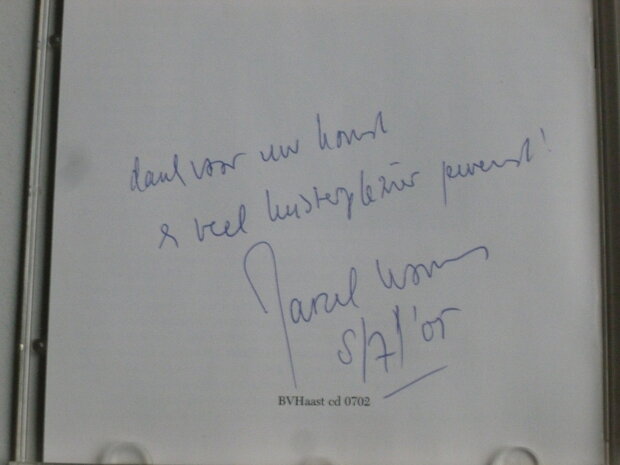 dank voor uw komst
& veel luisterplezier gewenst!
Marcel Worms
5/7/'05
BVHaast cd 0702